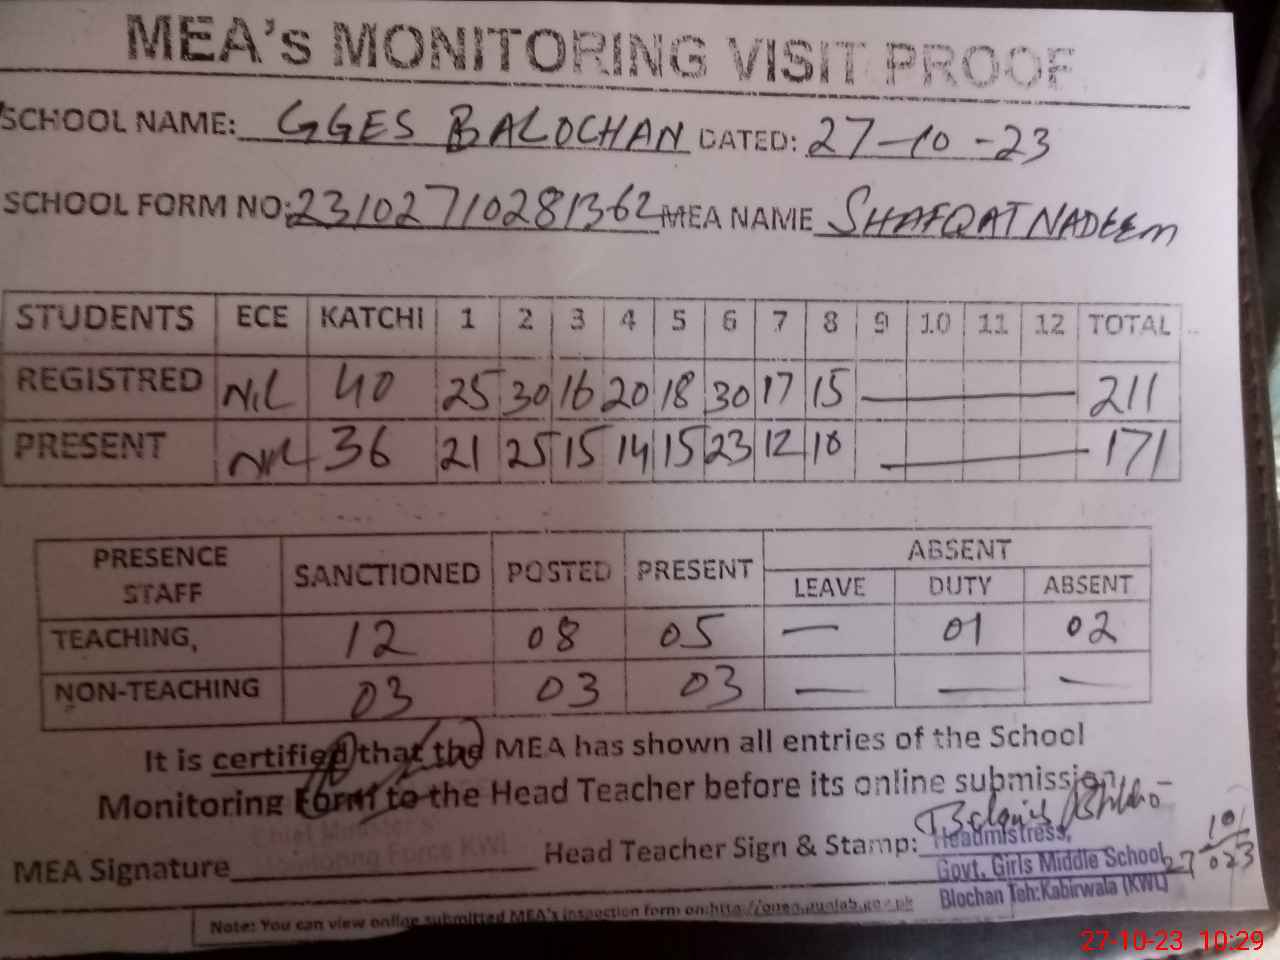 MEA's MONITORING VISIT PROOF
SCHOOL NAME: GGES BALOCHAN DATED: 27-10-23
SCHOOL FORM NO: 23102710281362 MEA NAME SHAFQAT NADEEM
STUDENTS ECE KATCHI 1 2 3 4 5 6 7 8 9 10 11 12 TOTAL
REGISTRED NIL 40 25 30 16 20 18 30 17 15 211
PRESENT NIL 36 21 25 15 14 15 23 12 10 171
PRESENCE STAFF SANCTIONED POSTED PRESENT ABSENT
LEAVE DUTY ABSENT
TEACHING, 12 08 05 — 01 02
NON-TEACHING 03 03 03 — — —
It is certified that the MEA has shown all entries of the School
Monitoring Form to the Head Teacher before its online submission
Chief Minister's
Monitoring Force KWL
MEA Signature Head Teacher Sign & Stamp:
Headmistress,
Govt. Girls Middle School
Blochan Teh:Kabirwala (KWL)
27/10/023
Note: You can view online submitted MEA's inspection form on:http://
27-10-23 10:29